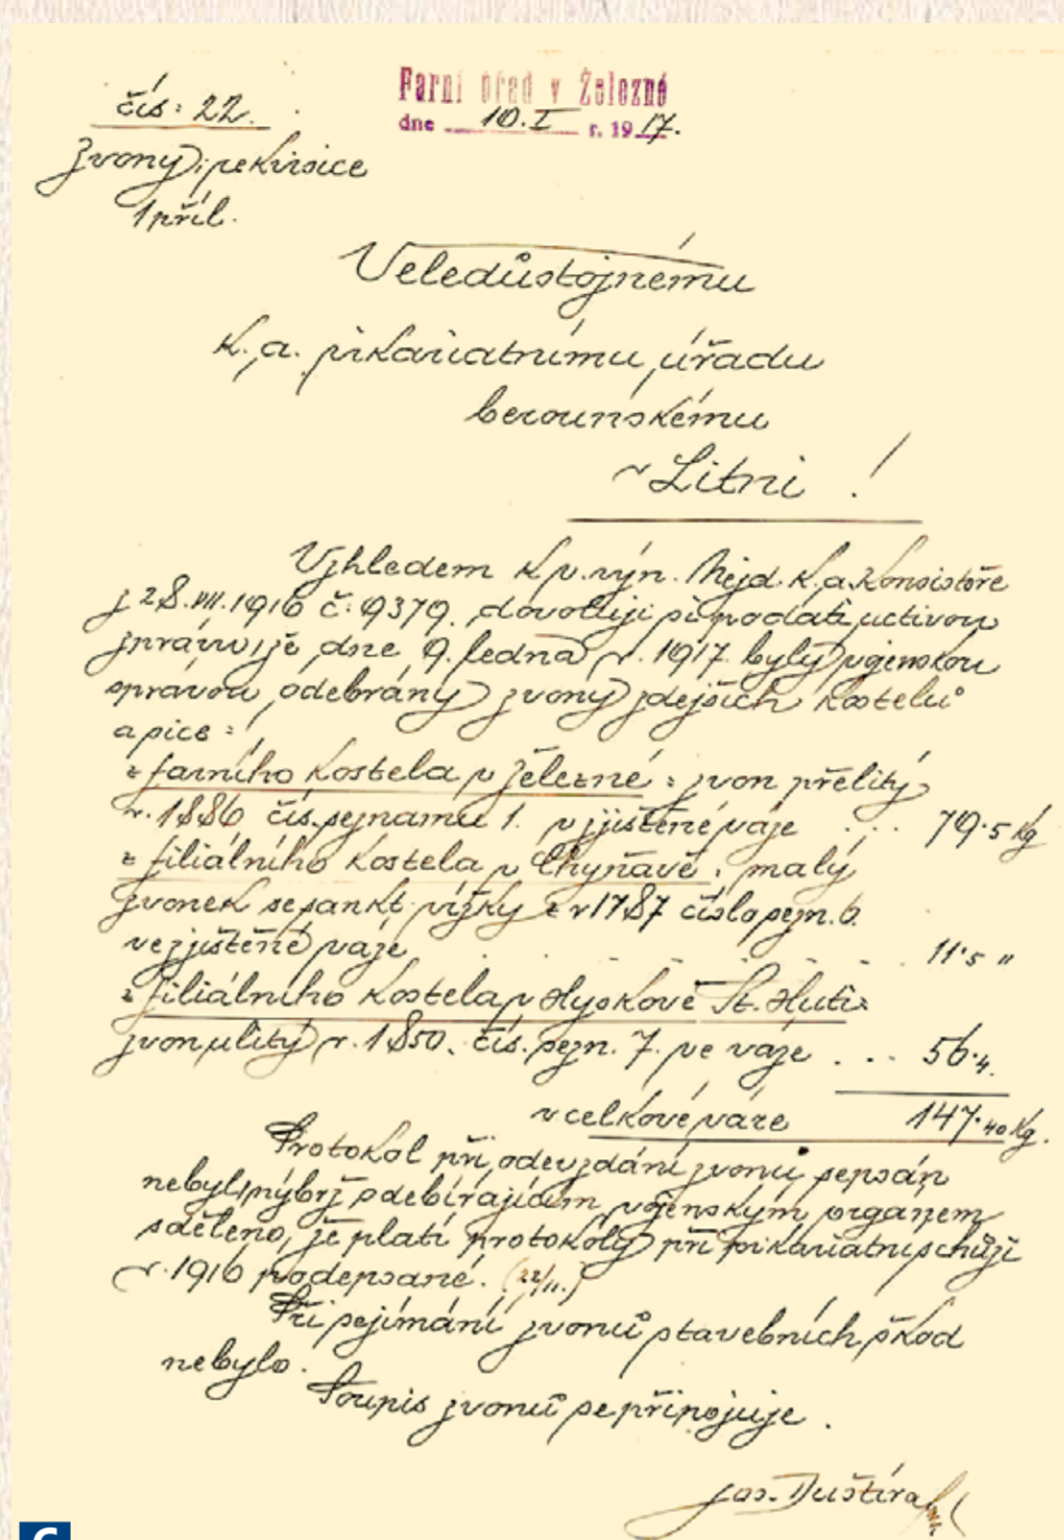 Farní úřad v Železné
dne 10. I r. 1917.
čís: 22.
Zvony; rekvisice
1 příl.
Veledůstojnému
k. a. vikariatnímu úřadu
berounskému
v Litni!
Vzhledem k v. výn. Nejd. k. a. Konsistoře
z 28. VIII. 1916 č: 9379. dovoluji si podati uctivou
zprávu, že dne 9. ledna r. 1917 byly vojenskou
správou odebrány zvony zdejších kostelů
a sice:
z farního kostela v Železné: zvon přelitý
r. 1886 čís. seznamu 1. v zjištěné váze ... 79.5 Kg
z filiálního kostela v Chyňavě: malý
zvonek se sankt. vížky z r 1787 číslo sezn. 6.
ve zjištěné váze . . . . . . 11.5 "
z filiálního kostela v Hyskově St. Huti:
zvon ulitý r. 1850. čís. sezn. 7. ve váze ... 56.4.
v celkové váze 147.40 Kg.
Protokol při odevzdání zvonů sepsán
nebyl, nýbrž odebírajícím vojenským orgánem
sděleno, že platí protokoly při vikariatní schůzi
r. 1916 podepsané. (22/11.)
Při sejímání zvonů stavebních škod
nebylo.
Soupis zvonů se připojuje.
Jos. Duštíra
6